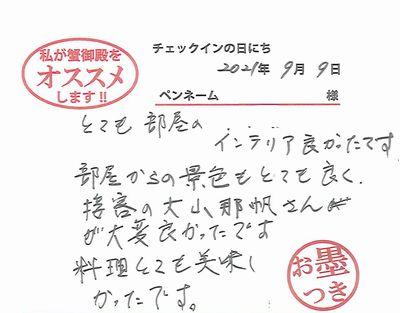 私が蟹御殿を
オススメ
します!!
チェックインの日にち
2021年 9月 9日
ペンネーム 様
とても 部屋の
インテリア良かったです
部屋からの景色もとても良く、
接客の大山那帆さん
が大変良かったです
料理とても美味し
かったです。
お墨
つき